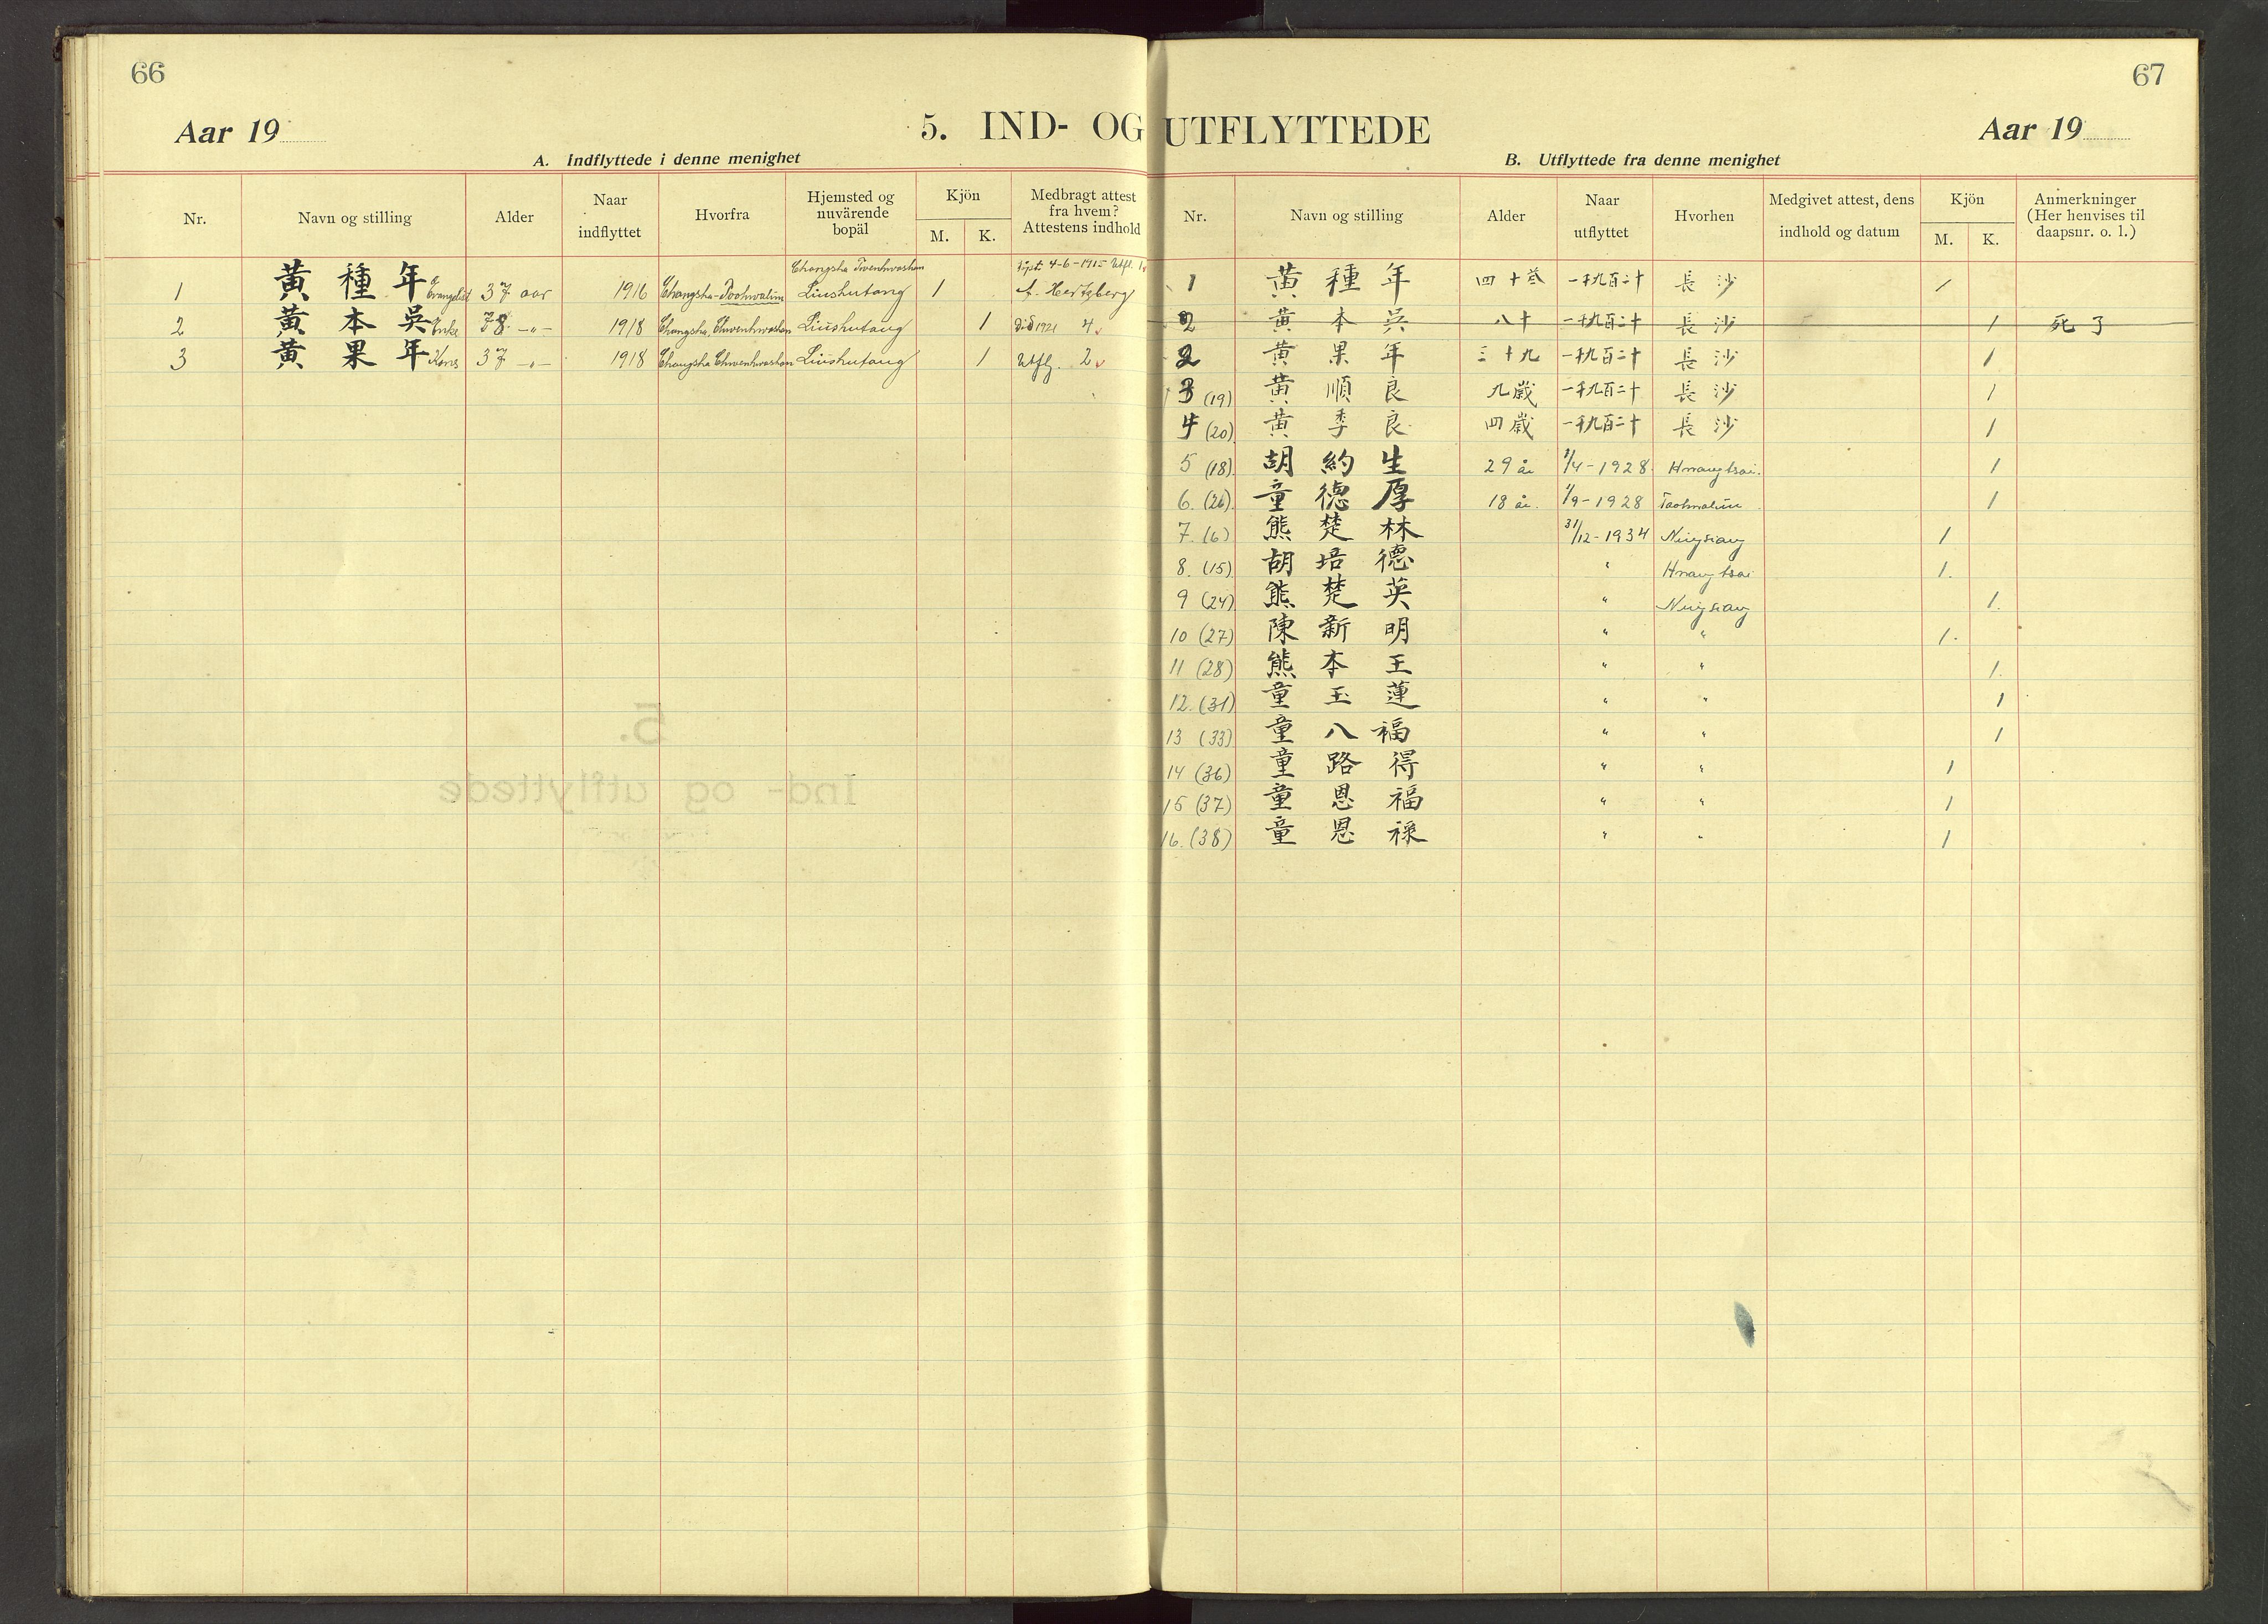 66
Aar 19
5. IND- OG UTFLYTTEDE
A. Indflyttede i denne menighet
Nr. Navn og stilling Alder Naar indflyttet Hvorfra Hjemsted og nuværende bopäl Kjön M. K. Medbragt attest fra hvem? Attestens indhold
1 黃種年 Evangelist 37 aar 1916 Changsha-Toohwalün Changsha Liushutang 1 4-6-1915 Utfl. 1 f. Hertzberg
2 黃本吳 Enke 78 -"- 1918 Changsha, Liushutang 1 Död 1921 4
3 黃果年 Kone 37 -"- 1918 Changsha Liushutang 1 Utfl. 2
5.
Ind- og utflyttede
67
Aar 19
B. Utflyttede fra denne menighet
Nr. Navn og stilling Alder Naar utflyttet Hvorhen Medgivet attest, dens indhold og datum Kjön M. K. Anmerkninger (Her henvises til daapsnr. o. l.)
1 黃種年 四十叁 一千九百二十 長沙 1
2 黃本吳 八十 一千九百二十 長沙 1 死了
2 黃果年 三十九 一千九百二十 長沙 1
3 (19) 黃順良 九歲 一千九百二十 長沙 1
4 (20) 黃季良 四歲 一千九百二十 長沙 1
5 (18) 胡約生 29 år 1/4-1928 Hwangtsai. 1
6. (26) 童德厚 18 år. 1/9-1928 Taohwalün 1
7. (6) 熊楚林 31/12-1934 Ningsiang 1
8. (15) 胡培德 " Hwangtsai 1.
9 (24) 熊楚英 " Ningsiang 1.
10 (27) 陳新明 " " 1.
11 (28) 熊本王 " " 1.
12. (31) 童玉蓮 " " 1
13 (33) 童八福 " " 1
14 (36) 童路得 " " 1
15 (37) 童恩福 " " 1
16. (38) 童恩祿 " " 1